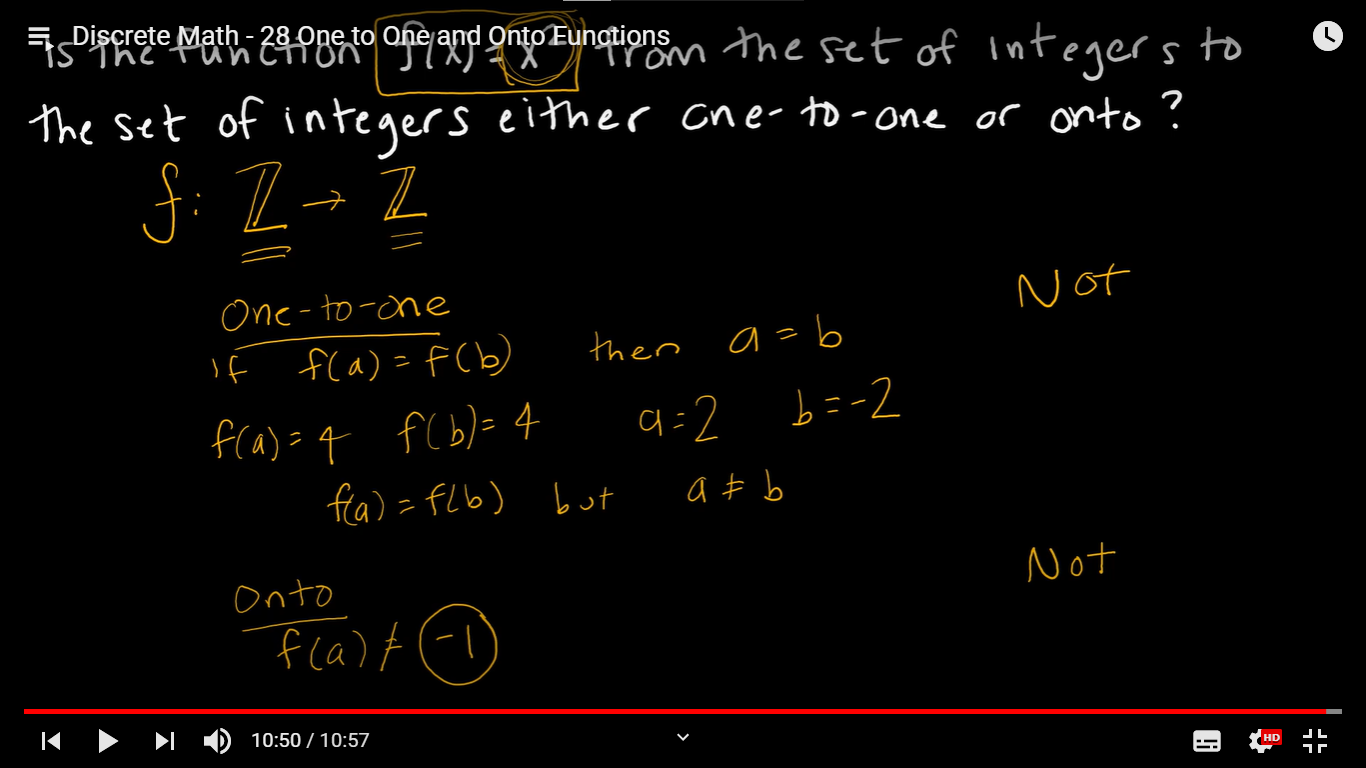 Discrete Math - 28 One to One and Onto Functions
is the function f(x) = x² from the set of integers to
the set of integers either one-to-one or onto?
f: ℤ → ℤ
Not
One-to-one
If f(a) = f(b) then a = b
f(a) = 4 f(b) = 4 a = 2 b = -2
f(a) = f(b) but a ≠ b
Not
Onto
f(a) ≠ -1
10:50 / 10:57
HD